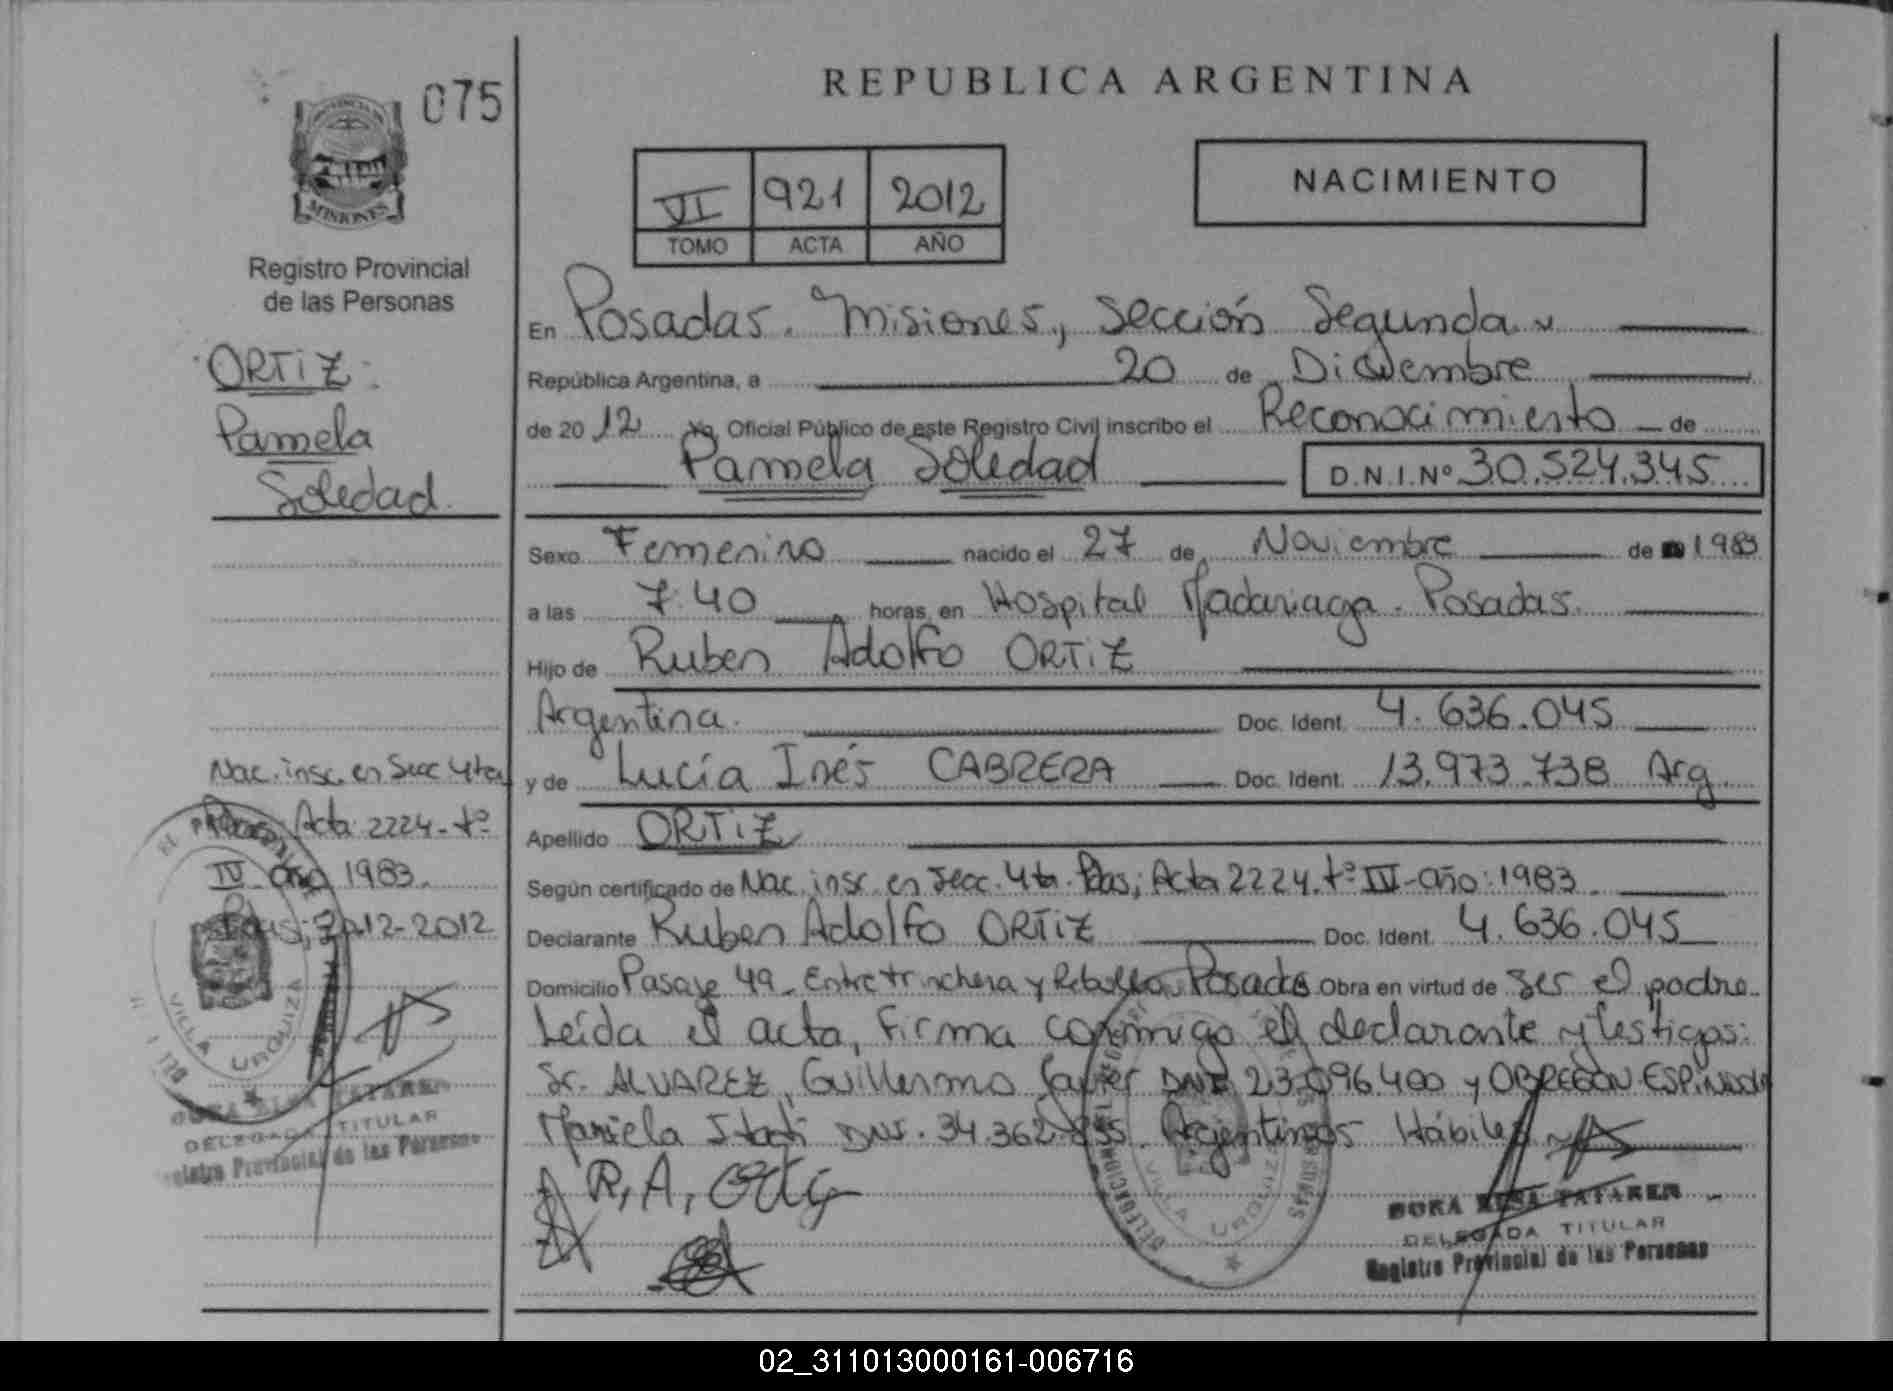 075
PROVINCIA DE
MISIONES
Registro Provincial
de las Personas
ORTIZ
Pamela
Soledad.
Nac. insc. en Secc 4ta
Acta 2224 - tº
IV año 1983.
12-2012
VILLA URQUIZA
DELEGADA TITULAR
Registro Provincial de las Personas
REPUBLICA ARGENTINA
VI 921 2012
TOMO ACTA AÑO
NACIMIENTO
En Posadas. Misiones, Sección Segunda
República Argentina, a 20 de Diciembre
de 2012 Yo, Oficial Público de este Registro Civil inscribo el Reconocimiento de
Pamela Soledad D.N.I.Nº 30.524.345
Sexo Femenino nacido el 27 de Noviembre de 1983
a las 7.40 horas, en Hospital Madariaga. Posadas.
Hijo de Ruben Adolfo ORTIZ
Argentina. Doc. Ident. 4.636.045
y de Lucía Inés CABRERA Doc. Ident. 13.973.738 Arg
Apellido ORTIZ
Según certificado de Nac. insc. en Secc. 4ta. Pdas; Acta 2224. tº IV - año: 1983
Declarante Ruben Adolfo ORTIZ Doc. Ident. 4.636.045
Domicilio Pasaje 49 - Entre trinchera y Posadas Obra en virtud de ser el padre.
Leída el acta, firma conmigo el declarante y testigos:
Sr. ALVAREZ, Guillermo Javier DNI 23.096.400 y OBREGON ESPINDOLA
Mariela Itatí DNI. 34.362. Argentinos Hábiles
R, A, Ortiz
VILLA URQUIZA
DELEGADA TITULAR
Registro Provincial de las Personas
02_311013000161-006716